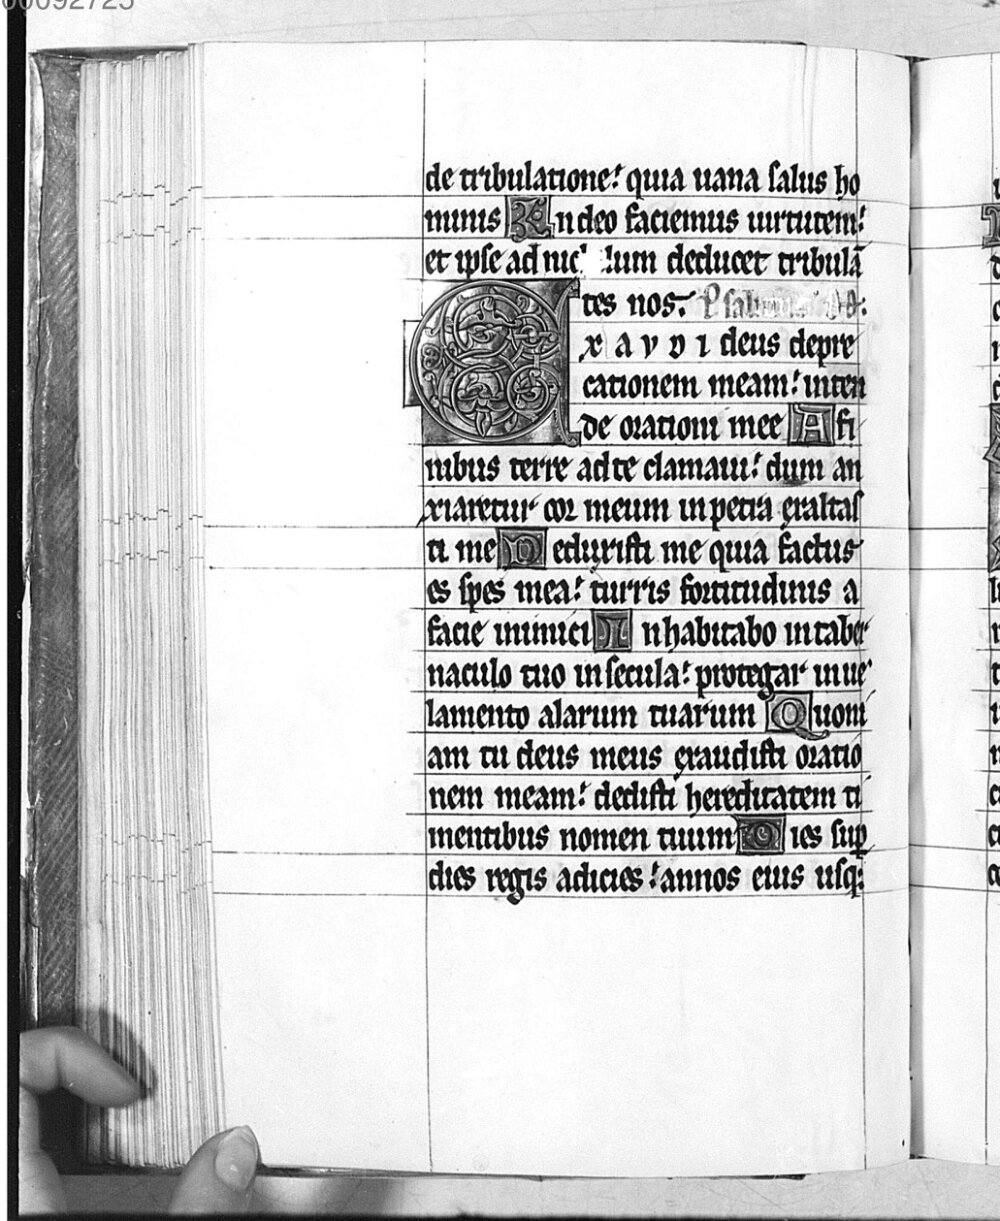 00092725
de tribulatione: quia uana salus ho
minis In deo faciemus uirtutem:
et ipse ad nic lum deducet tribulā
tes nos. Psalmus
Exaudi deus depre
cationem meam: inten
de orationi mee A fi
nibus terre ad te clamaui: dum an
xiaretur cor meum in petra exaltas
ti me Deduxisti me quia factus
es spes mea: turris fortitudinis a
facie inimici Inhabitabo in taber
naculo tuo in secula: protegar in ue
lamento alarum tuarum Quoni
am tu deus meus exaudisti oratio
nem meam: dedisti hereditatem ti
mentibus nomen tuum Dies sup
dies regis adicies: annos eius usq: